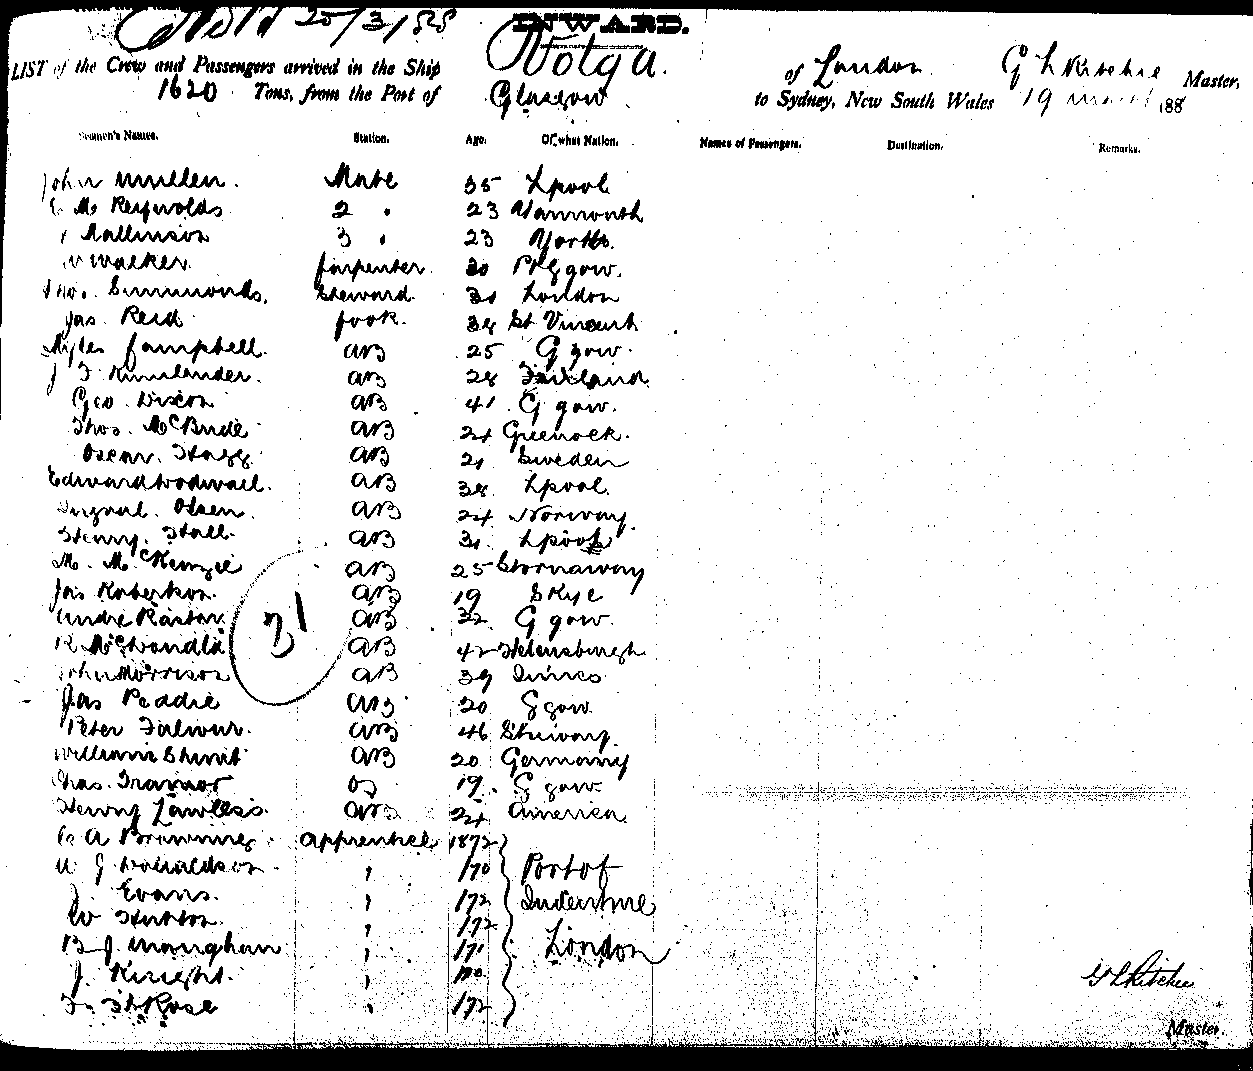 25/3/88 INWARD.
LIST of the Crew and Passengers arrived in the Ship Volga. of London G L Ritchie Master,
1620 Tons, from the Port of Glasgow to Sydney, New South Wales 19 March 188
Seamen's Names. Station. Age. Of what Nation. Names of Passengers. Destination. Remarks.
John Mullen. Mate 35 Lpool
M. Reynolds 2 " 23 Yarmouth
Mallinson 3 " 23 Yorks.
Walker Carpenter 30 gow.
Thos. Simmonds. Steward 30 London
Jas. Reid Cook. 38 St Vincent
Myles Campbell. AB 25 G gow.
J. F. AB 28
Geo Dixon AB 41 G gow.
Thos. McBride AB 24 Greenock.
Oscar. Stagg AB 21 Sweden
Edward Wodwall. AB 38 Lpool.
Olsen. AB 24 Norway.
Henry. Stall. AB 31 Lpool
M. McKenzie AB 25 Stornaway
Jas Robertson. AB 19 Skye
Andre AB 32 G gow.
R. AB 42 Helensburgh
John Morrison AB 39
31
Jas Peddie AB 20 G gow.
Peter AB 46
William Shmit AB 20 Germany
Chas. Trainor OS 19. G gow.
Henry Lawless AB 24 America
A Browning. Apprentice 1872
J Donaldson " /70 Port of
J. Evans. " /72 Indenture
W " /72
B. J. Maughan " /71 London
J. Knight. "
Rose " /72
G L Ritchie
Master.